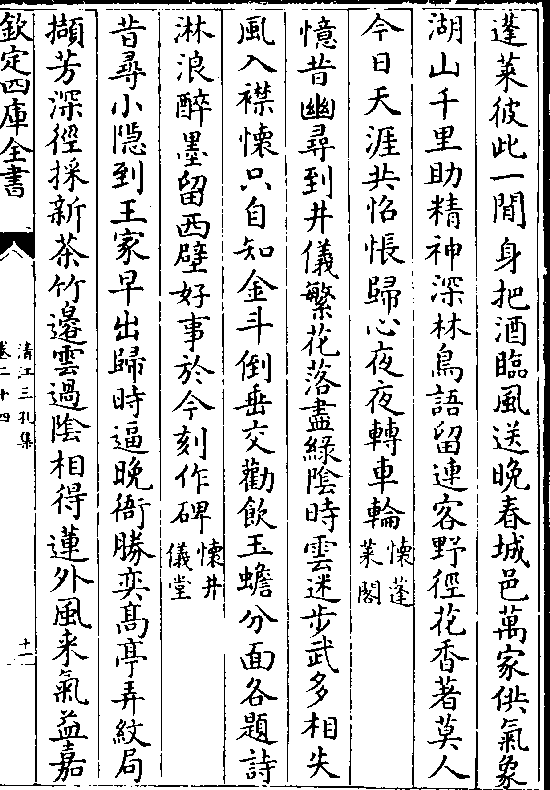 蓬萊彼此一閒身把酒臨風送晚春城邑萬家供氣象
湖山千里助精神深林鳥語留連客野徑花香著莫人
今日天涯共怊悵歸心夜夜轉車輪懷蓬萊閣
憶昔幽尋到井儀繁花落盡綠陰時雲迷步武多相失
風入襟懷只自知金斗倒垂交勸飲玉蟾分面各題詩
淋浪醉墨留西壁好事於今刻作碑懷井儀堂
昔尋小隱到王家早出歸時逼晚衙勝奕髙亭弄紋局
擷芳深徑採新茶竹邉雲過陰相得蓮外風来氣益嘉
欽定四庫全書
清江三孔集
卷二十四
十二